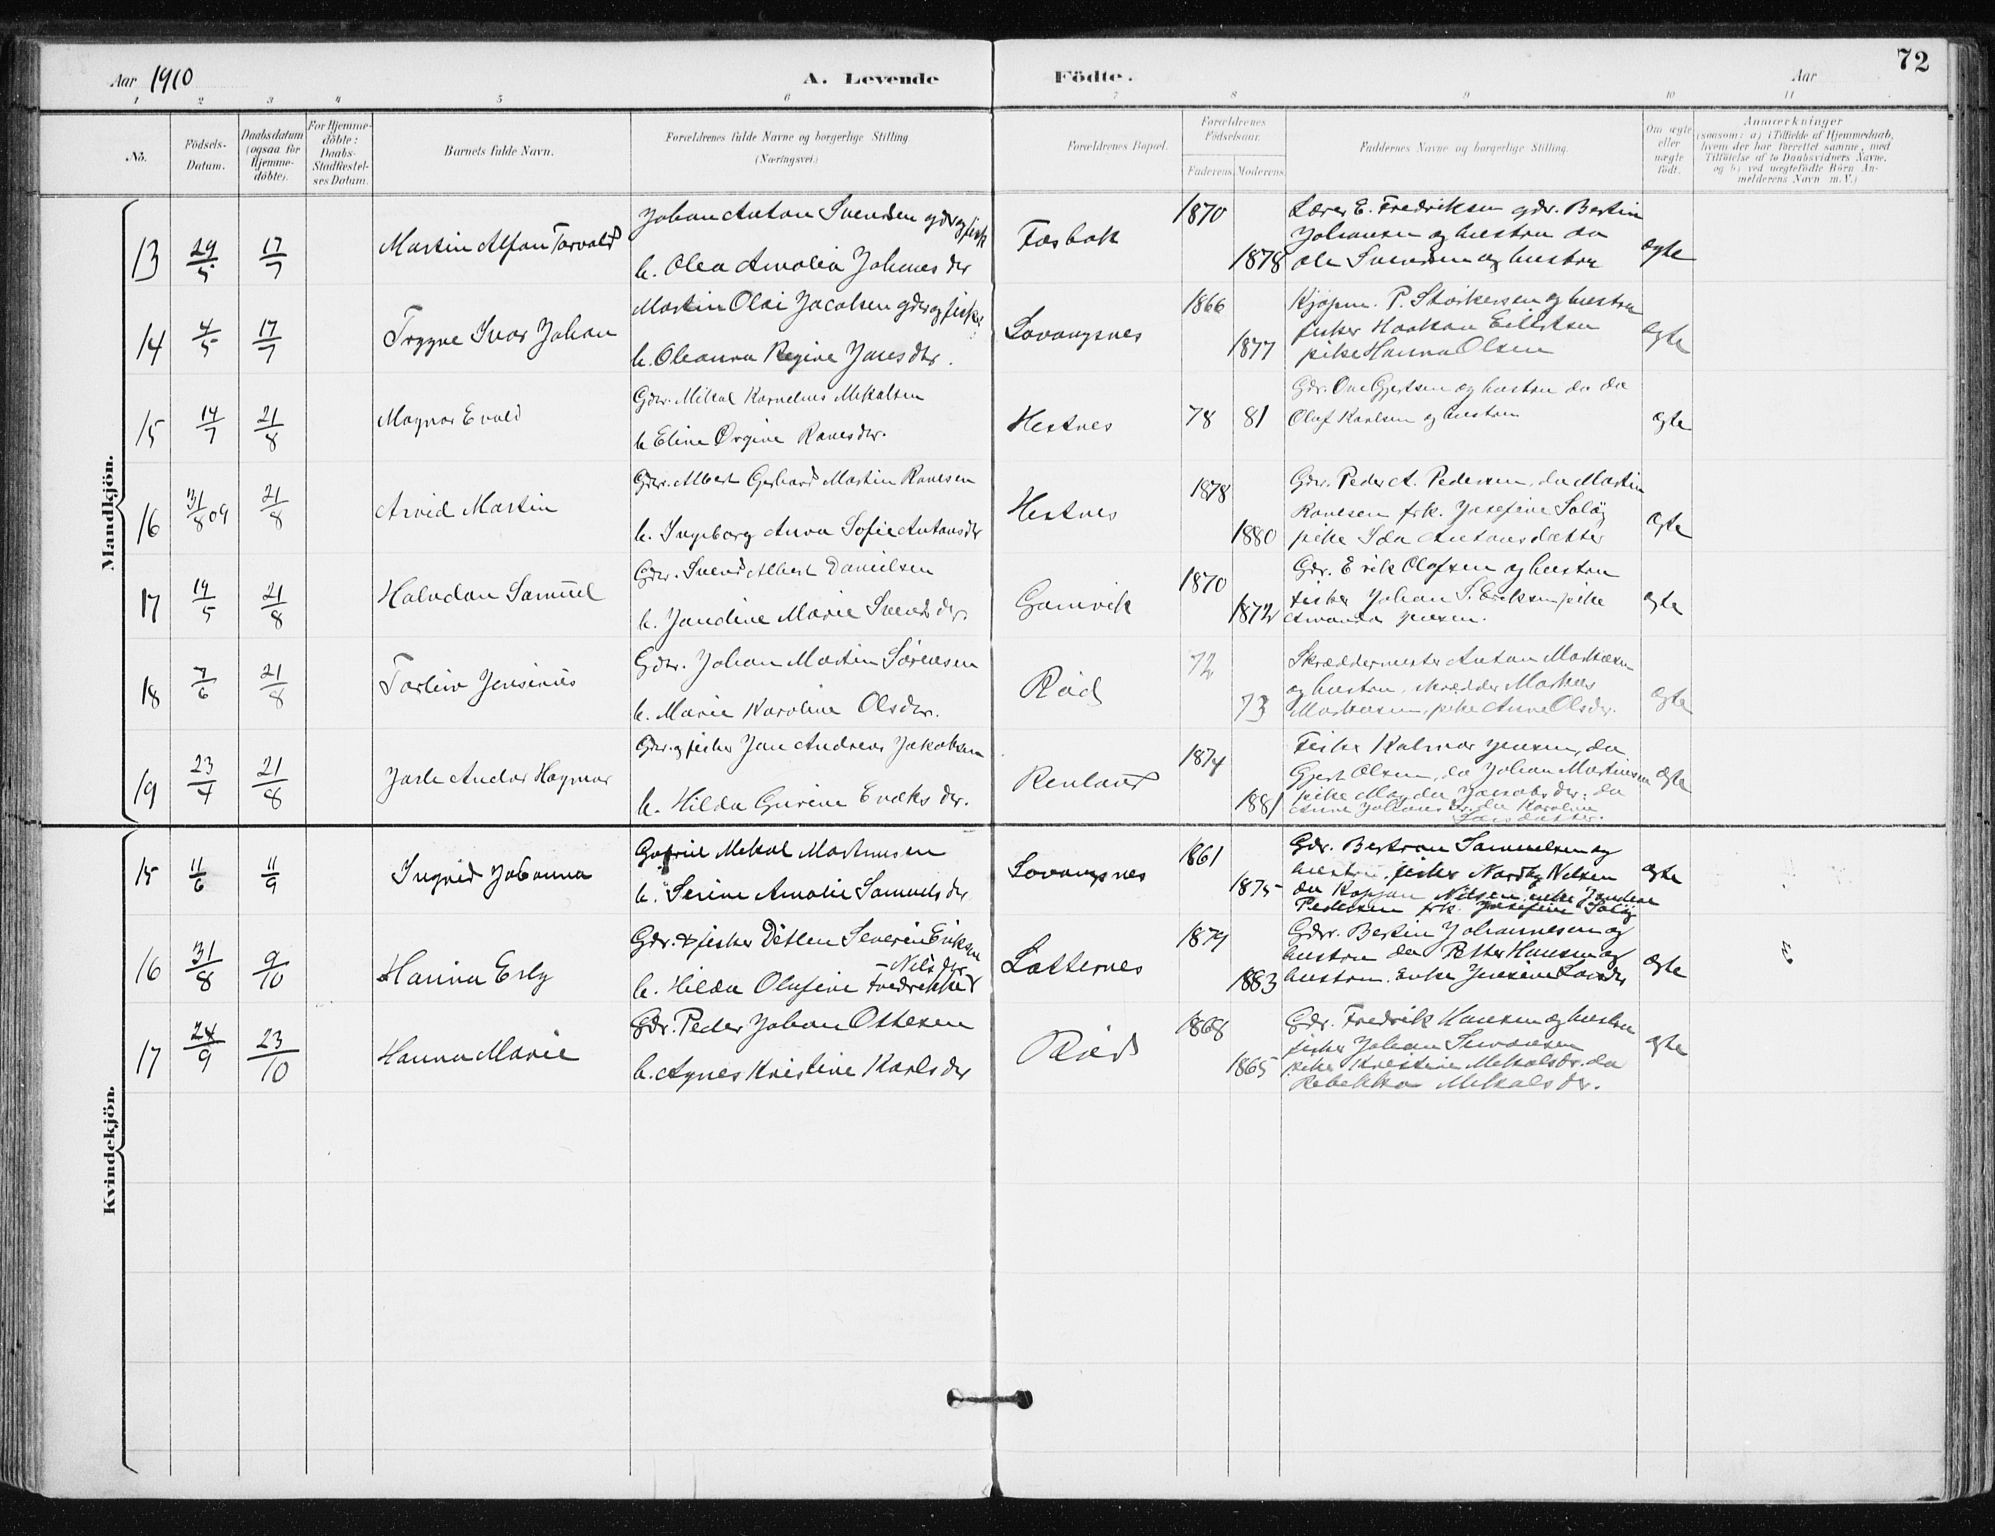 72
Aar 1910
A. Levende Födte.
Aar
1 2 3 4 5 6 7 8 9 10 11
No.
Födsels-Datum.
Daabsdatum (ogsaa for Hjemme-döbte).
For Hjemme-döbte: Daabs-Stadfæstel-ses Datum.
Barnets fulde Navn.
Forældrenes fulde Navne og borgerlige Stilling (Næringsvei.)
Forældrenes Bopæl.
Forældrenes Födselsaar.
Faderens. Moderens.
Faddernes Navne og borgerlige Stilling.
Om ægte eller uægte födt.
Anmærkninger
(saasom: a) i Tilfælde af Hjemmedaab, hvem der har forrettet samme, med Tilföielse af to Daabsvidners Navne, og b) ved uægtefödte Börn An-melderens Navn m. V.)
Mandkjön.
13 29/5 17/7 Martin Alfon Torvald
Johan Anton Svendsen gdr og fisk
h. Olea Amalia Johns dtr
Fasbak 1870 1878
Lærer E. Fredriksen gdr. Bertin
Johansen og hustru da
Ole Svendsen og hustru
ægte
14 4/5 17/7 Trygve Ivar Johan
Martin Olai Jacobsen gdr og fisker
h. Oleanna Regine Jans dtr.
Lovangsnes 1866 1877
Kjøpm. P. Størkersen og hustru
fisker Haakon Eilertsen
pike Hanna Olsen
ægte
15 14/7 21/8 Magnar Evald
Gdr. Mikal Kornelius Mikalsen
h. Eline Orgine Ranes dtr.
Hestnes 78 81
Gdr. Ove Gjertsen og hustru da da
Olaf Karlsen og hustru
ægte
16 31/8 09 21/8 Arvid Martin
Gdr. Albert Gerhard Martin Ranesen
h. Ingeborg Anna Sofie Antons dtr
Hestnes 1878 1880
Gdr. Peder A. Pedersen, da Martin
Ranesen frk. Josefine Saløg
pike Ida Antonsdatter
ægte
17 14/5 21/8 Halvdan Samuel
Gdr. Svend Albert Danielsen
h. Jandine Marie Svends dtr
Gamvik 1870 1872
Gdr. Erik Olofsen og hustru
fisker Johan S. Eriksen pike
Amanda Jensen.
ægte
18 7/6 21/8 Torleiv Jensinius
Gdr. Johan Martin Sørensen
h. Marie Karoline Ols dtr.
Rød 72 73
Skræddermester Anton Markusen
og hustru, skrædder Markus
Markusen, pike Anne Olsdtr.
ægte
19 23/4 21/8 Jarle Andor Hagmar
Gdr. og fisker Jan Andreas Jakobsen
h. Hilda Gurine Eriks dtr.
Renland 1874 1881
Fisker Kalmar Jensen, da
Gjert Olsen, da Johan Martinsen
pike Magda Jakobs dtr. da
Anne Johans dtr. da Karoline
Larsdatter.
ægte
Kvindekjön.
15 11/6 11/9 Ingrid Johanna
Gabriel Mikal Martinusen
h. Serine Amalie Samuels dtr
Lovangsnes 1861 1875
Gdr. Bertran Samuelsen og
hustru, fisker Nordby Nilsen
da Kasper Nilsen, enke Jandine
Pedersen frk. Josefine Saløg
ægte
16 31/8 9/10 Hanna Esly
Gdr. & fisker Ditlev Severin Eriksen
h. Hilda Olufine Fredrikke Nils dtr
Latternes 1879 1883
Gdr. Bertin Johannesen og
hustru da Petter Hansen og
hustru. Enke Jensine Larsdtr
ægte
17 24/9 23/10 Hanna Marie
Gdr. Peder Johan Ottesen
h. Agnes Kristine Karls dtr
Rød 1868 1865
Gdr. Fredrik Hansen og hustru
fisker Johan Simonsen
pike Kristine Mikalsdtr. da
Rebekka Mikals dtr.
ægte